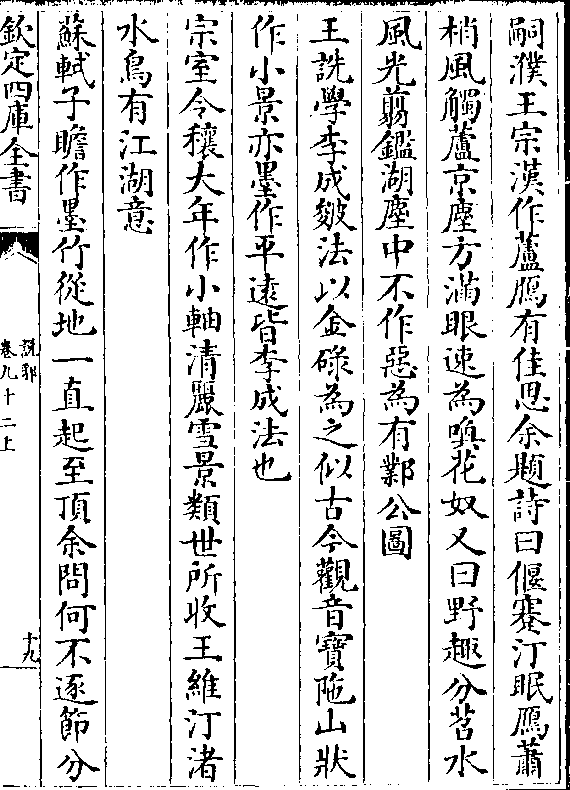 嗣濮王宗漢作蘆鴈有佳思余題詩曰偃蹇汀眠鴈蕭
梢風觸蘆京塵方滿眼速為喚花奴又曰野趣分苕水
風光剪鑑湖塵中不作惡為有鄴公圖
王詵學李成皴法以金碌為之似古今觀音寶陁山狀
作小景亦墨作平逺皆李成法也
宗室令穰大年作小軸清麗雪景類世所收王維汀渚
水鳥有江湖意
蘇軾子瞻作墨竹從地一直起至頂余問何不逐節分
欽定四庫全書
說郛
卷九十二上
十九